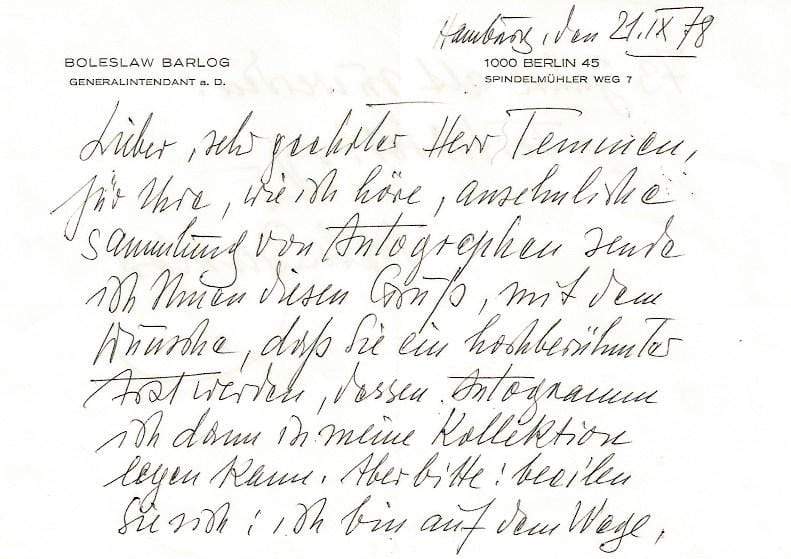 Hamburg, den 21.IX 78
BOLESLAW BARLOG
GENERALINTENDANT a. D.
1000 BERLIN 45
SPINDELMÜHLER WEG 7
Lieber, sehr geehrter Herr Temmen,
für Ihre, wie ich höre, ansehnliche
Sammlung von Autographen sende
ich Ihnen diesen Gruß, mit dem
Wunsche, daß Sie ein hochberühmter
Arzt werden, dessen Autogramm
ich dann in meine Kollektion
legen kann. Aber bitte: beeilen
Sie sich: ich bin auf dem Wege,